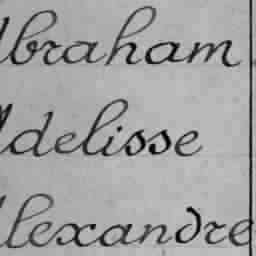 Abraham
Adelisse
Alexandre